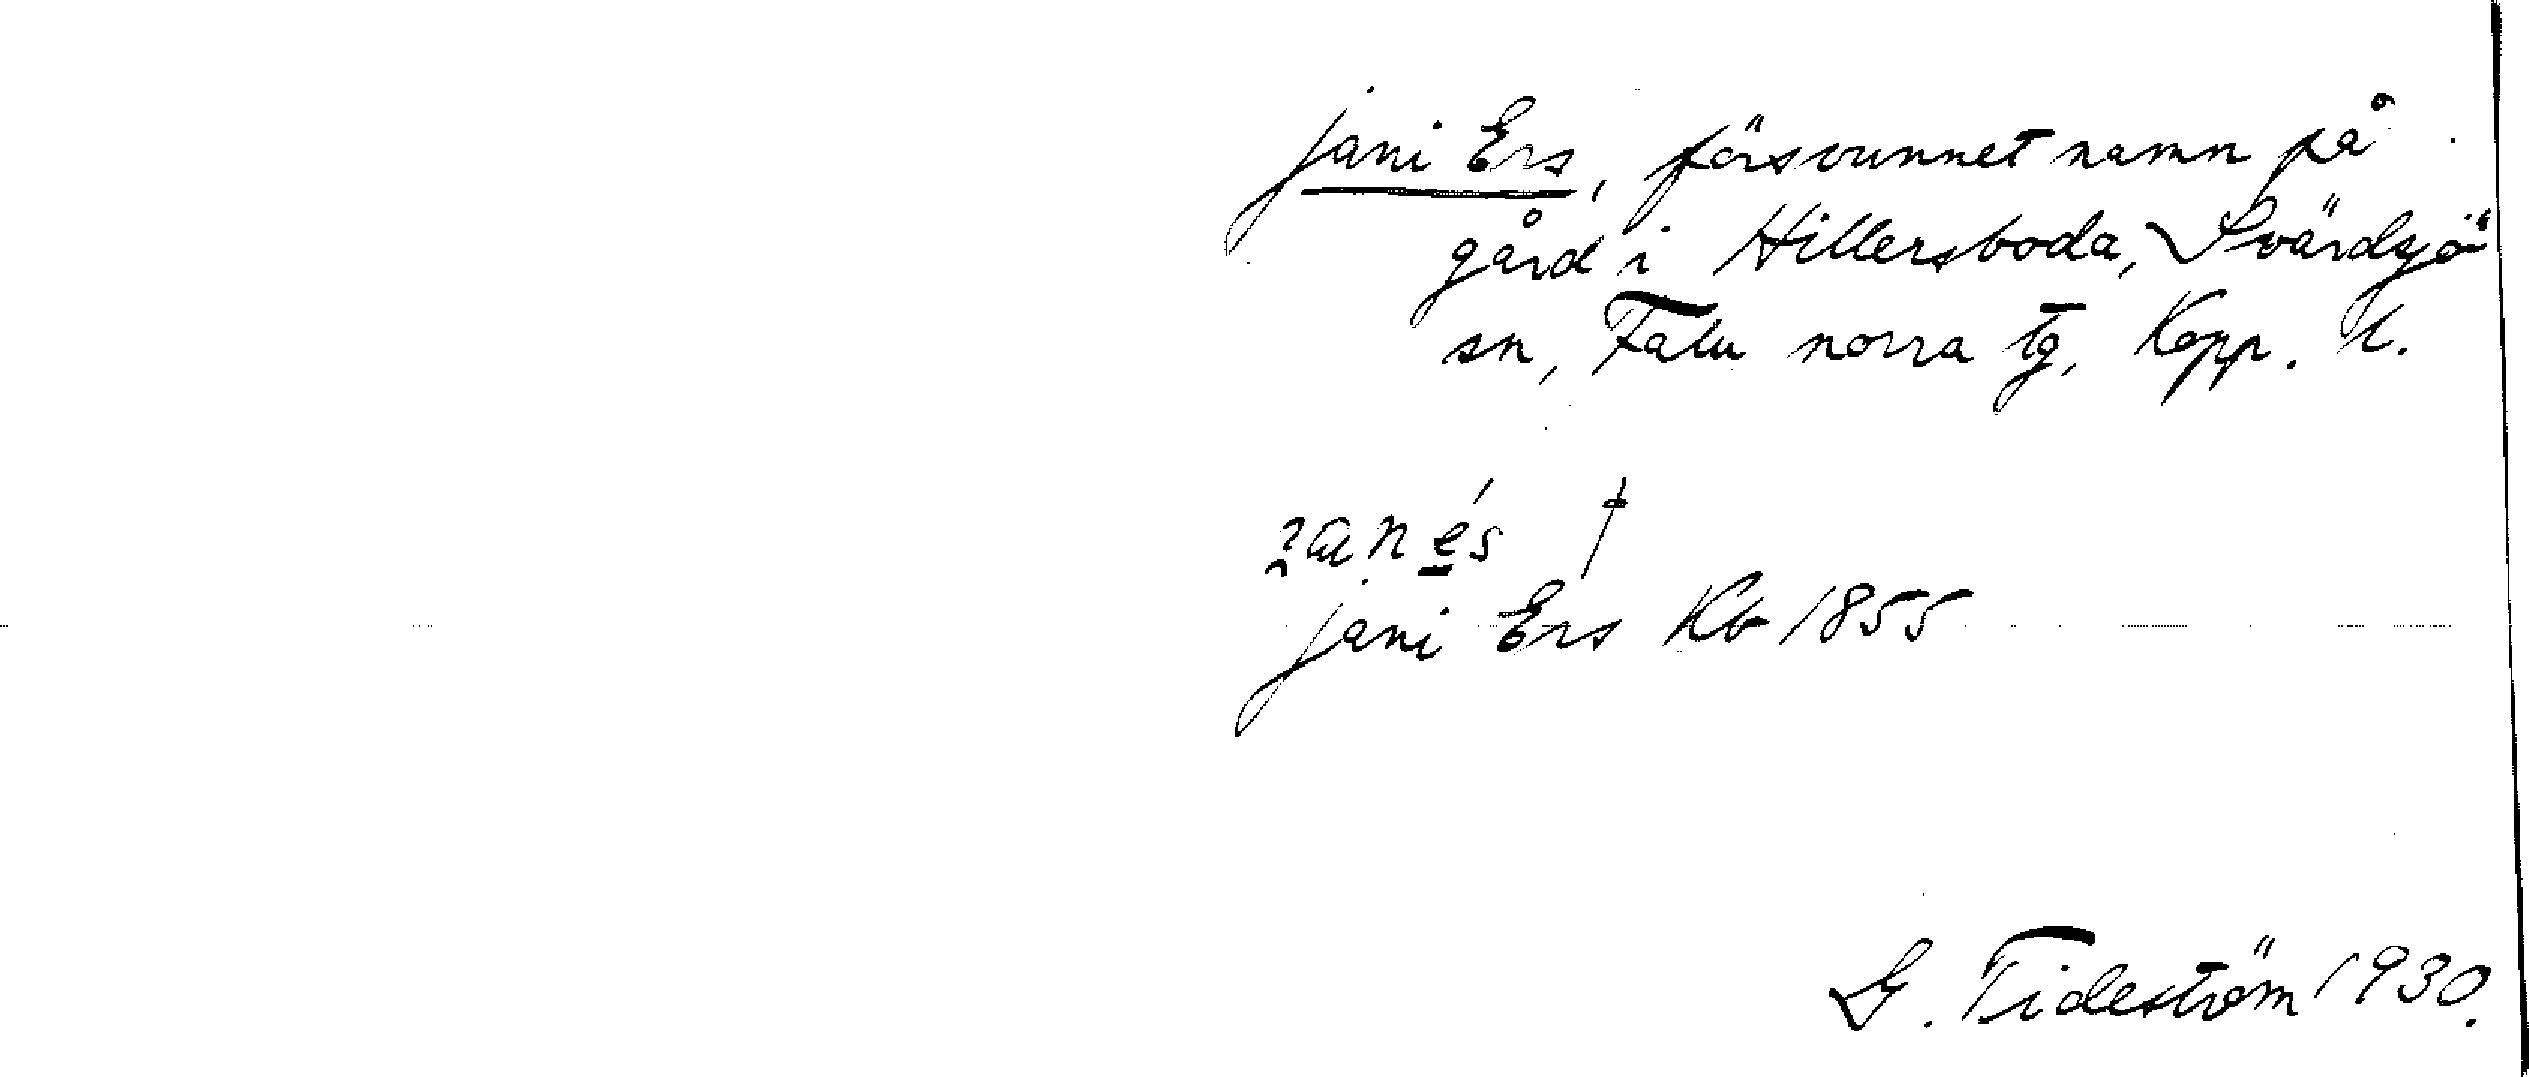 Jani Ers, försvunnet namn på
gård i Hillersboda, Svärdsjö
sn, Falu norra tg, Kopp. l.
†
Jani Ers Kb 1855
G. Tideström 1930.